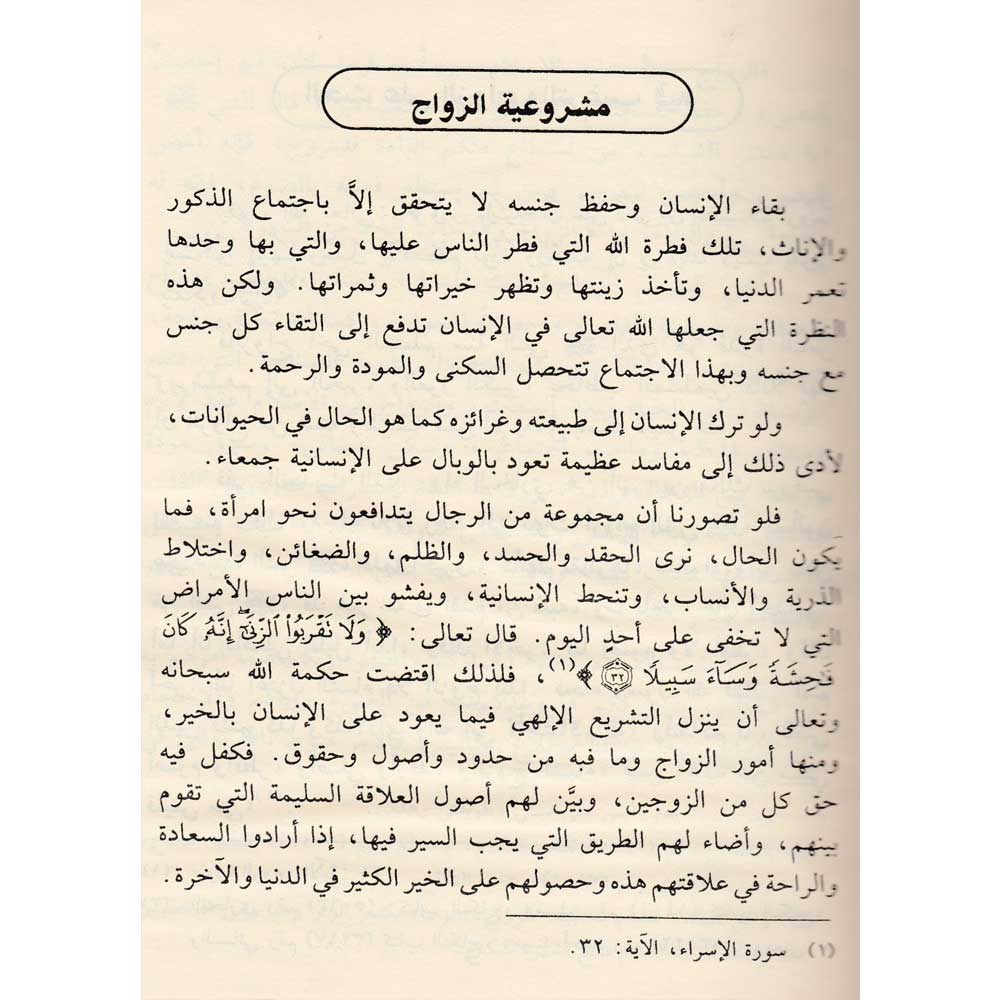 مشروعية الزواج
بقاء الإنسان وحفظ جنسه لا يتحقق إلاَّ باجتماع الذكور
والإناث، تلك فطرة الله التي فطر الناس عليها، والتي بها وحدها
تعمر الدنيا، وتأخذ زينتها وتظهر خيراتها وثمراتها. ولكن هذه
النظرة التي جعلها الله تعالى في الإنسان تدفع إلى التقاء كل جنس
مع جنسه وبهذا الاجتماع تتحصل السكنى والمودة والرحمة.
ولو ترك الإنسان إلى طبيعته وغرائزه كما هو الحال في الحيوانات،
لأدى ذلك إلى مفاسد عظيمة تعود بالوبال على الإنسانية جمعاء.
فلو تصورنا أن مجموعة من الرجال يتدافعون نحو امرأة، فما
يَكون الحال، نرى الحقد والحسد، والظلم، والضغائن، واختلاط
الذرية والأنساب، وتنحط الإنسانية، ويفشو بين الناس الأمراض
التي لا تخفى على أحدٍ اليوم. قال تعالى: ﴿ وَلَا تَقْرَبُوا۟ ٱلزِّنَىٰٓ ۖ إِنَّهُۥ كَانَ
فَـٰحِشَةً وَسَآءَ سَبِيلًا ۝٣٢ ﴾(١)، فلذلك اقتضت حكمة الله سبحانه
وتعالى أن ينزل التشريع الإلهي فيما يعود على الإنسان بالخير،
ومنها أمور الزواج وما فبه من حدود وأصول وحقوق. فكفل فيه
حق كل من الزوجين، وبيَّن لهم أصول العلاقة السليمة التي تقوم
بينهم، وأضاء لهم الطريق التي يجب السير فيها، إذا أرادوا السعادة
والراحة في علاقتهم هذه وحصولهم على الخير الكثير في الدنيا والآخرة.
(١) سورة الإسراء، الآية: ٣٢.